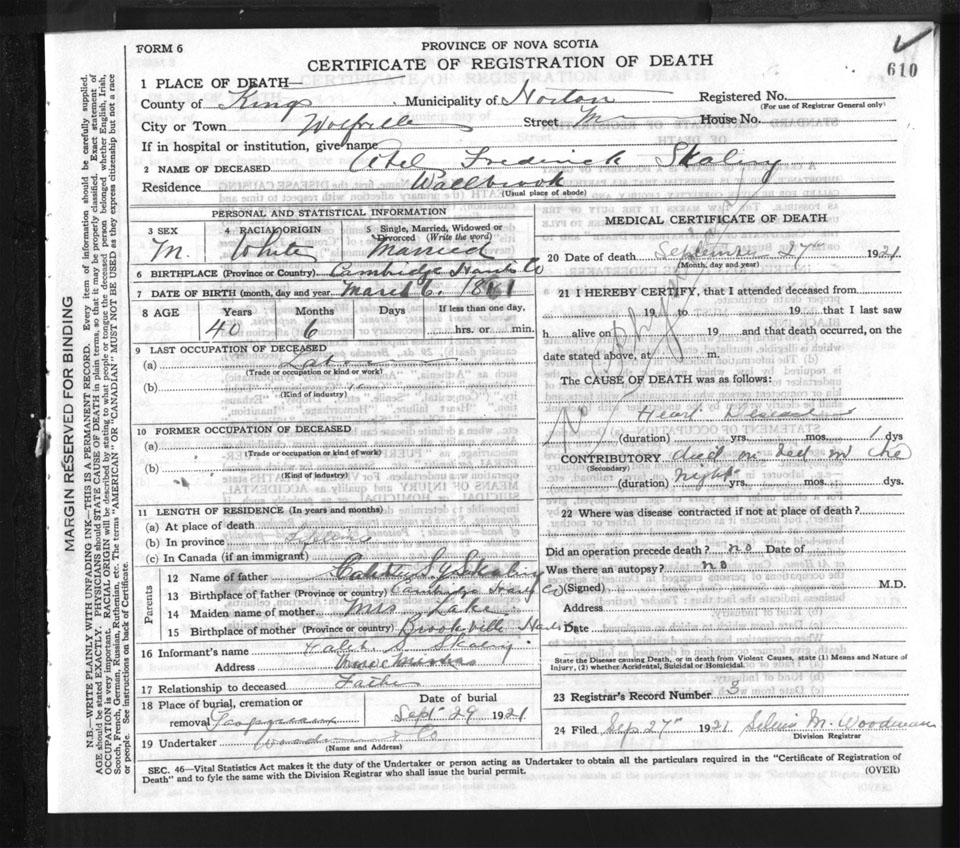 FORM 6
PROVINCE OF NOVA SCOTIA
CERTIFICATE OF REGISTRATION OF DEATH
610
1 PLACE OF DEATH
County of Kings Municipality of Horton Registered No.
(For use of Registrar General only)
City or Town Wolfville Street House No.
If in hospital or institution, give name
2 NAME OF DECEASED Frederick Skaling
Residence Wallbrook
(Usual place of abode)
PERSONAL AND STATISTICAL INFORMATION
3 SEX 4 RACIAL ORIGIN 5 Single, Married, Widowed or Divorced (Write the word)
M. White Married
6 BIRTHPLACE (Province or Country) Cambridge Hants Co
7 DATE OF BIRTH (month, day and year March 6. 1881
8 AGE Years Months Days If less than one day,
40 6 hrs. or min.
9 LAST OCCUPATION OF DECEASED
(a)
(Trade or occupation or kind or work)
(b)
(Kind of industry)
10 FORMER OCCUPATION OF DECEASED
(a)
(Trade or occupation or kind or work)
(b)
(Kind of industry)
11 LENGTH OF RESIDENCE (In years and months)
(a) At place of death
(b) In province Lifetime
(c) In Canada (if an immigrant)
Parents
12 Name of father Skaling
13 Birthplace of father (Province or country) Cambridge Hants Co
14 Maiden name of mother Miss Lake
15 Birthplace of mother (Province or country) Brookville Hants
16 Informant's name S Skaling
Address
17 Relationship to deceased Father
18 Place of burial, cremation or removal Date of burial
Sept 29 1921
19 Undertaker & Co
(Name and Address)
MEDICAL CERTIFICATE OF DEATH
20 Date of death September 27th 1921
(Month, day and year)
21 I HEREBY CERTIFY, that I attended deceased from
19 to 19 that I last saw
h alive on 19 and that death occurred, on
date stated above, at m.
The CAUSE OF DEATH was as follows:
Heart Disease
(duration) yrs. mos. 1 dys
CONTRIBUTORY died in bed in the
(Secondary) night
(duration) yrs. mos. dys.
22 Where was disease contracted if not at place of death?
Did an operation precede death? no Date of
Was there an autopsy? no
(Signed) M.D.
Address
Date
State the Disease causing Death, or in death from Violent Causes, state (1) Means and Nature of
Injury, (2) whether Accidental, Suicidal or Homicidal.
23 Registrar's Record Number 3
24 Filed Sep 27th 1921 M. Woodman
Division Registrar
SEC. 46—Vital Statistics Act makes it the duty of the Undertaker or person acting as Undertaker to obtain all the particulars required in the "Certificate of Registration of
Death" and to fyle the same with the Division Registrar who shall issue the burial permit.
(OVER)
MARGIN RESERVED FOR BINDING
N.B.—WRITE PLAINLY WITH UNFADING INK—THIS IS A PERMANENT RECORD. Every item of information should be carefully supplied.
AGE should be stated EXACTLY. PHYSICIANS should STATE CAUSE OF DEATH in plain terms, so that it may be properly classified. Exact statement of
OCCUPATION is very important. RACIAL ORIGIN will be described by stating to what people or tongue the deceased person belonged whether English, Irish,
Scotch, French, German, Russian, Ruthenian, etc. The terms "AMERICAN" OR "CANADIAN" MUST NOT BE USED as they express citizenship but not a race
or people. See instructions on back of Certificate.